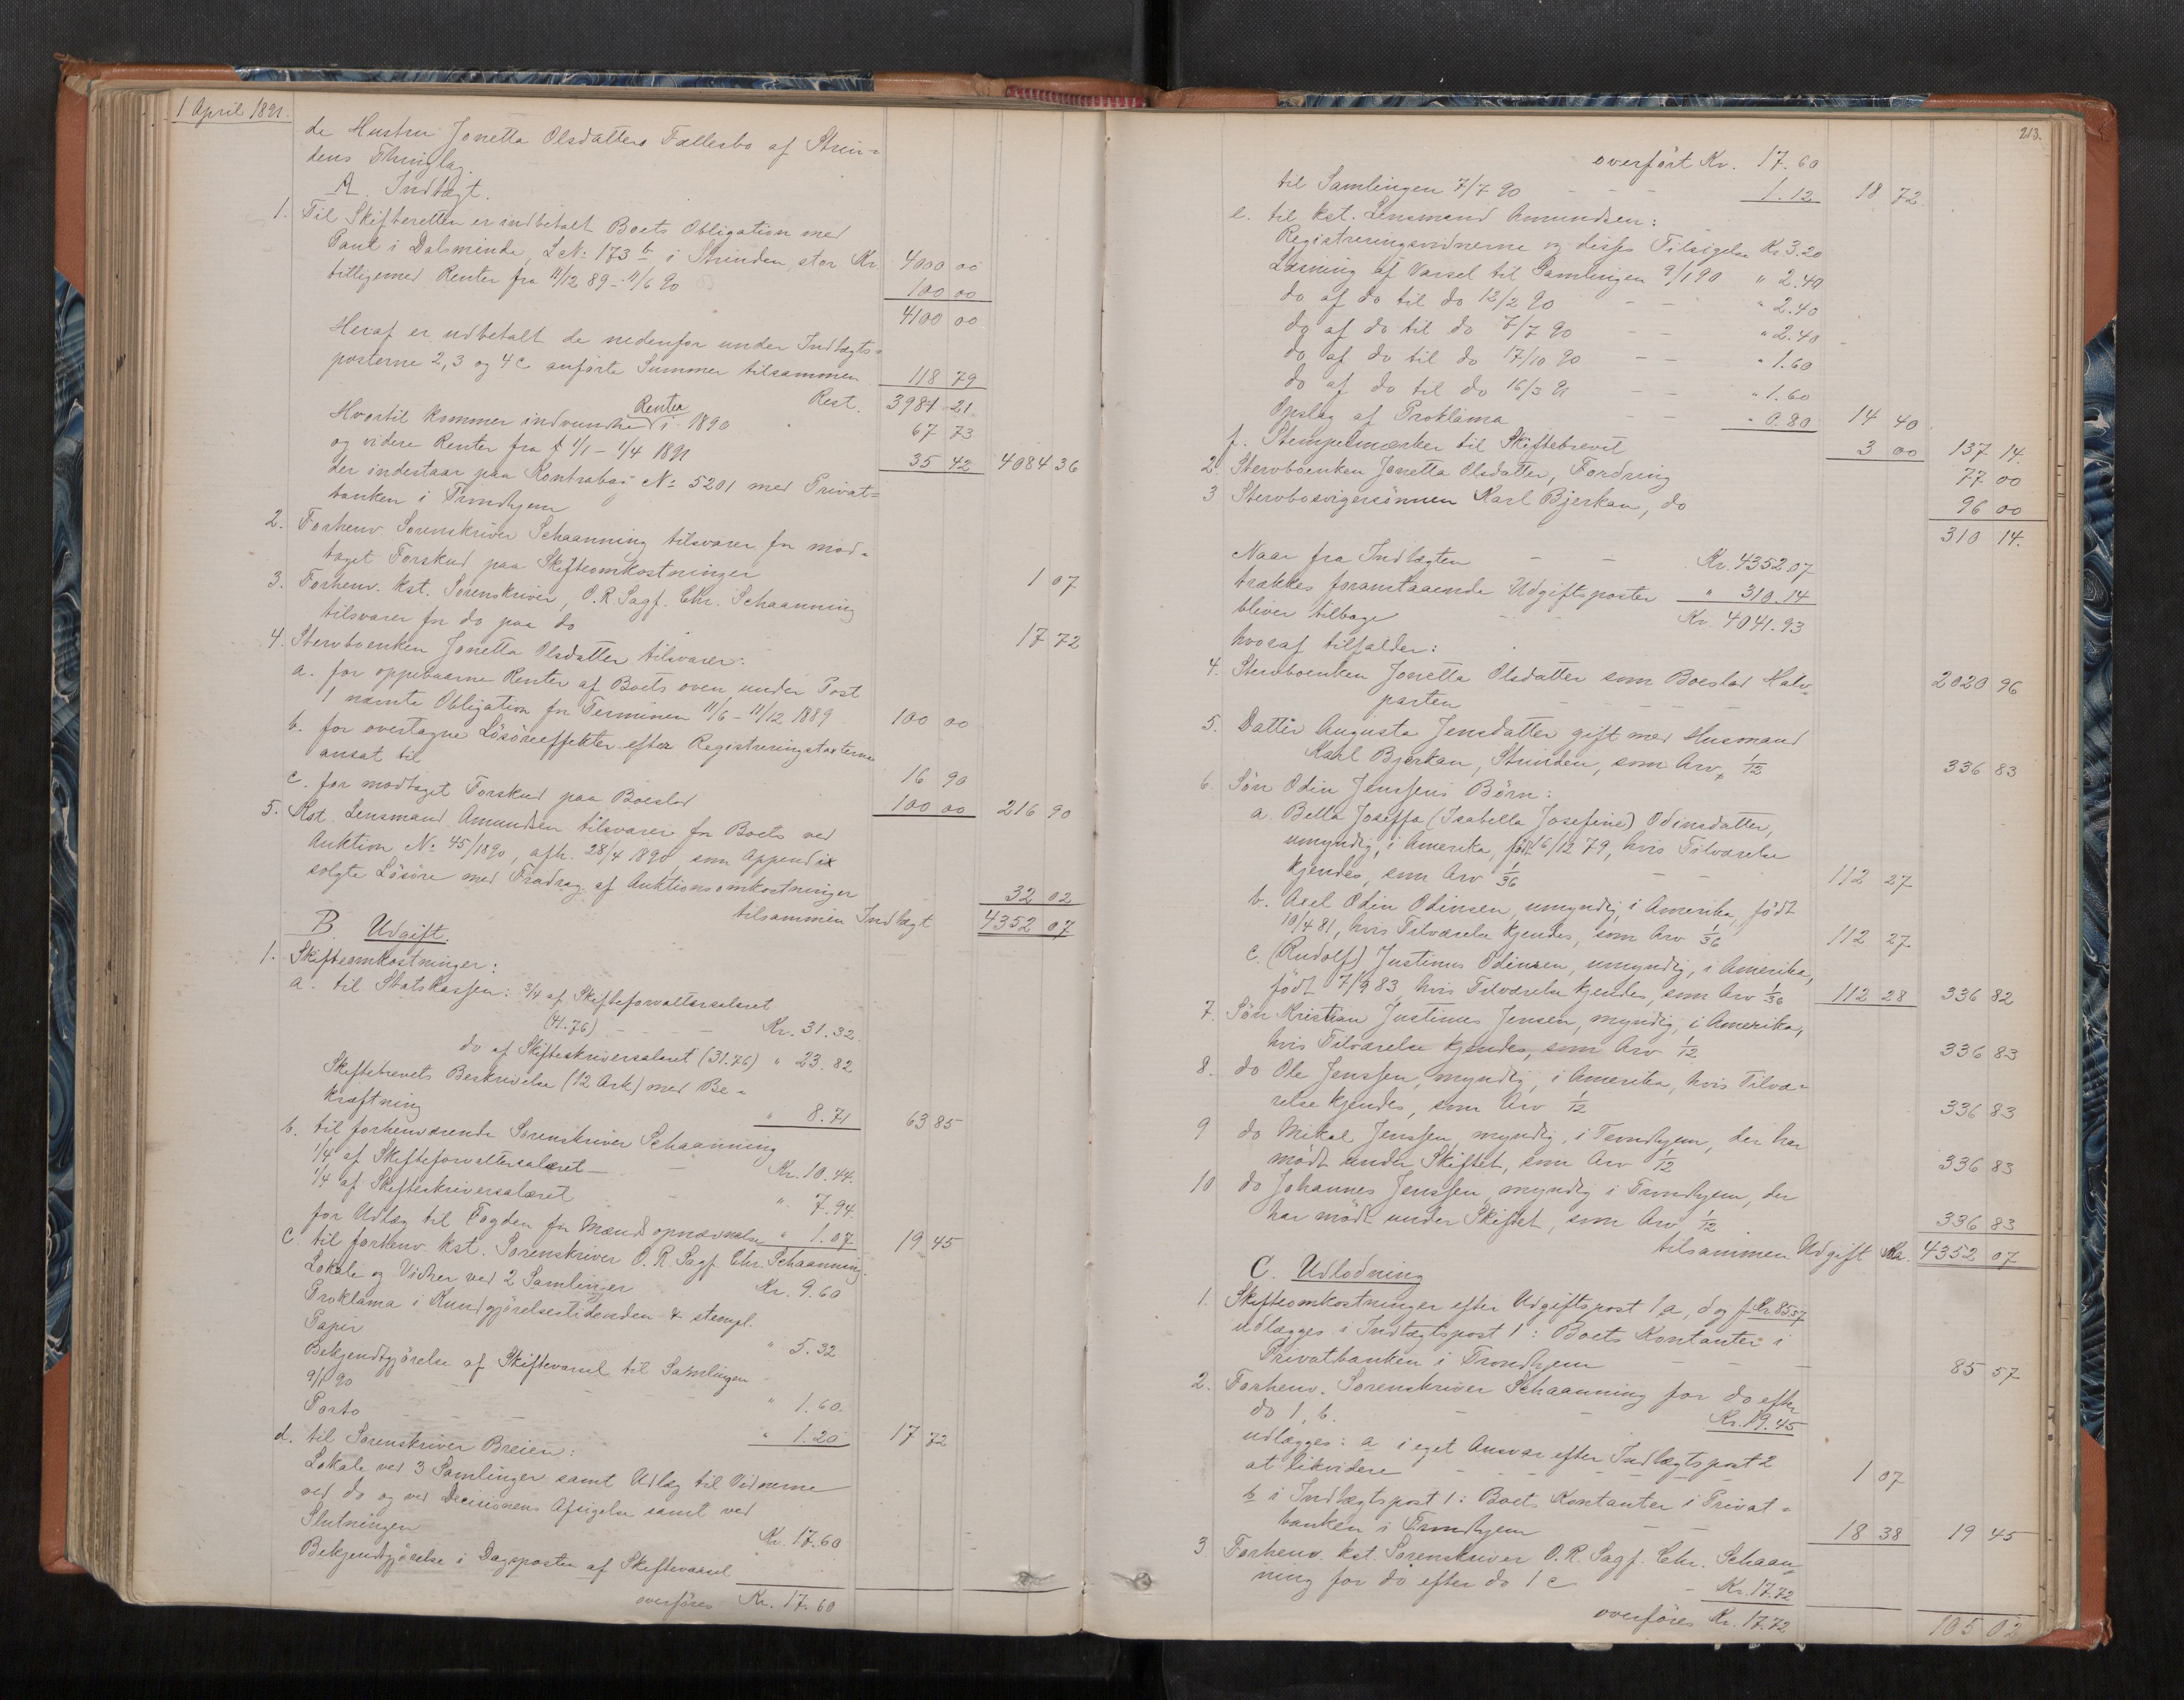 1 April 1891.
de Hustru Jonetta Olsdatters Fællesbo af Strin=
dens Thinglag.
A. Indtægt.
1. Til Skifteretten er indbetalt Boets Obligation med
Pant i Dalsminde, L.N: 173 b i Strinden, stor Kr. 4000 00
tilligemed Renter fra 11/12 89 - 11/6 90 100 00
4100 00
Heraf er udbetalt de nedenfor under Indtægts=
posterne 2, 3 og 4 c anførte Summer tilsammen 118 79
Rest. 3981 21
Hvortil kommer indvundne Renter i 1890 67 73
og videre Renter fra 1/1 - 1/4 1891 35 42 4084 36
der indestaar paa Kontrabog No 5201 med Privat=
banken i Trondhjem
2. Forhenv. Sorenskriver Schaanning tilsvarer for mod=
taget Forskud paa Skifteomkostninger 1 07
3. Forhenv. kst. Sorenskriver, O.R.Sagf. Chr. Schaanning
tilsvarer for do paa do 17 72
4. Stervboenken Jonetta Olsdatter tilsvarer:
a. for oppebaarne Renter af Boets oven under Post
1 nævnte Obligation for Terminen 11/6 - 11/12 1889 100 00
b. for overtagne Løsøreeffekter efter Registreringstaxterne
ansat til 16 90
c. for modtaget Forskud paa Boeslod 100 00 216 90
5. Kst. Lensmand Amundsen tilsvarer for Boets ved
Auktion No 45/1890, afh. 28/4 1890 som Appendix
solgte Løsøre med Fradrag af Auktionsomkostninger 32 02
tilsammen Indtægt 4352 07
B Udgift.
1. Skifteomkostninger:
a. til Statskassen: 3/4 af Skifteforvaltersalæret
(41.76) - - Kr. 31.32
do af Skifteskriversalæret (31.76) " 23.82
Skiftebrevets Beskrivelse (12 Ark) med Be=
kræftning " 8.71 63 85
b. til forhenværende Sorenskriver Schaanning
1/4 af Skifteforvaltersalæret - Kr. 10.44.
1/4 af Skifteskriversalæret - " 7.94
for Udlæg til Fogden for Mænds opnævnelse " 1.07 19 45
c. til forhenv. kst. Sorenskriver O.R. Sagf. Chr. Schaanning.
Lokale og Vidner ved 2 Samlinger Kr. 9.60
Proklama i Kundgjørelsestidenden & stempl.
Papir " 5.32
Bekjendtgjørelse af Skiftevarsel til Samlingen
9/1 90 - - " 1.60.
Porto - - " 1.20 17 72
d. til Sorenskriver Breien:
Lokale ved 3 Samlinger samt Udlæg til Vidnerne
ved do og ved Decisionens Afsigelse samt ved
Slutningen Kr. 17.60
Bekjendtgjørelse i Dagsposten af Skiftevarsel
overføres Kr. 17.60
213.
overført Kr. 17.60
til Samlingen 7/7 90 - - - 1.12 18 72
e. til kst. Lensmand Amundsen:
Registreringsvidnerne og disses Tilsigelse Kr. 3.20
Læsning af Varsel til Samlingen 9/1 90 " 2.40
do af do til do 12/2 90 - - " 2.40
do af do til do 7/7 90 - - " 2.40
do af do til do 17/10 90 - - " 1.60
do af do til do 16/3 91 - " 1.60
Opslag af Proklama - - " 0.80 14 40
f. Stempelmærker til Skiftebrevet 3 00 137 14.
2. Stervboenken Jonetta Olsdatter, Fordring 77 00
3 Stervbosvigersønnen Karl Bjerkan, do 96 00
310 14.
Naar fra Indtægten - - Kr. 4352.07
trækkes foranstaaende Udgiftsposter " 310.14
bliver tilbage - - Kr. 4041.93
hvoraf tilfalder:
4. Stervboenken Jonetta Olsdatter som Boeslod Halv=
parten - - - 2020 96
5. Datter Augusta Jensdatter gift med Husmand
Karl Bjerkan, Strinden, som Arv 1/12 336 83
6. Søn Odin Jenssens Børn:
a. Bella Joseffa (Isabella Josefine) Odinsdatter,
umyndig, i Amerika, født 16/12 79, hvis Tilværelse
kjendes, som Arv 1/36 - - 112 27
b. Axel Odin Odinsen, umyndig, i Amerika, født
10/4 81, hvis Tilværelse kjendes, som Arv 1/36 112 27
c. (Rudolf) Justinus Odinsen, umyndig, i Amerika,
født 7/9 83 hvis Tilværelse kjendes, som Arv 1/36 112 28 336 82
7. Søn Kristian Justinus Jensen, myndig, i Amerika,
hvis Tilværelse kjendes, som Arv 1/12 336 83
8. do Ole Jenssen, myndig, i Amerika, hvis Tilvæ=
relse kjendes, som Arv 1/12 336 83
9 do Mikal Jenssen, myndig, i Trondhjem, der har
mødt under Skiftet, som Arv 1/12 336 83
10 do Johannes Jenssen, myndig i Trondhjem, der
har mødt under Skiftet, som Arv 1/12 336 83
tilsammen Udgift Kr. 4352 07
C. Udlodning
1. Skifteomkostninger efter Udgiftspost 1 a, d og f Kr. 85.57
udlægges i Indtægtspost 1: Boets Kontanter i
Privatbanken i Trondhjem - - - 85 57
2. Forhenv. Sorenskriver Schaanning for do efter
do 1, b. - - Kr. 19.45
udlægges: a i eget Ansvar efter Indtægtspost 2
at likvidere - - - 1 07
b i Indtægtspost 1: Boets Kontanter i Privat=
banken i Trondhjem - - 18 38 19 45
3. Forhenv. kst. Sorenskriver O.R. Sagf. Chr. Schaan=
ning for do efter do 1 c - Kr. 17.72
overføres Kr. 17.72 105 02